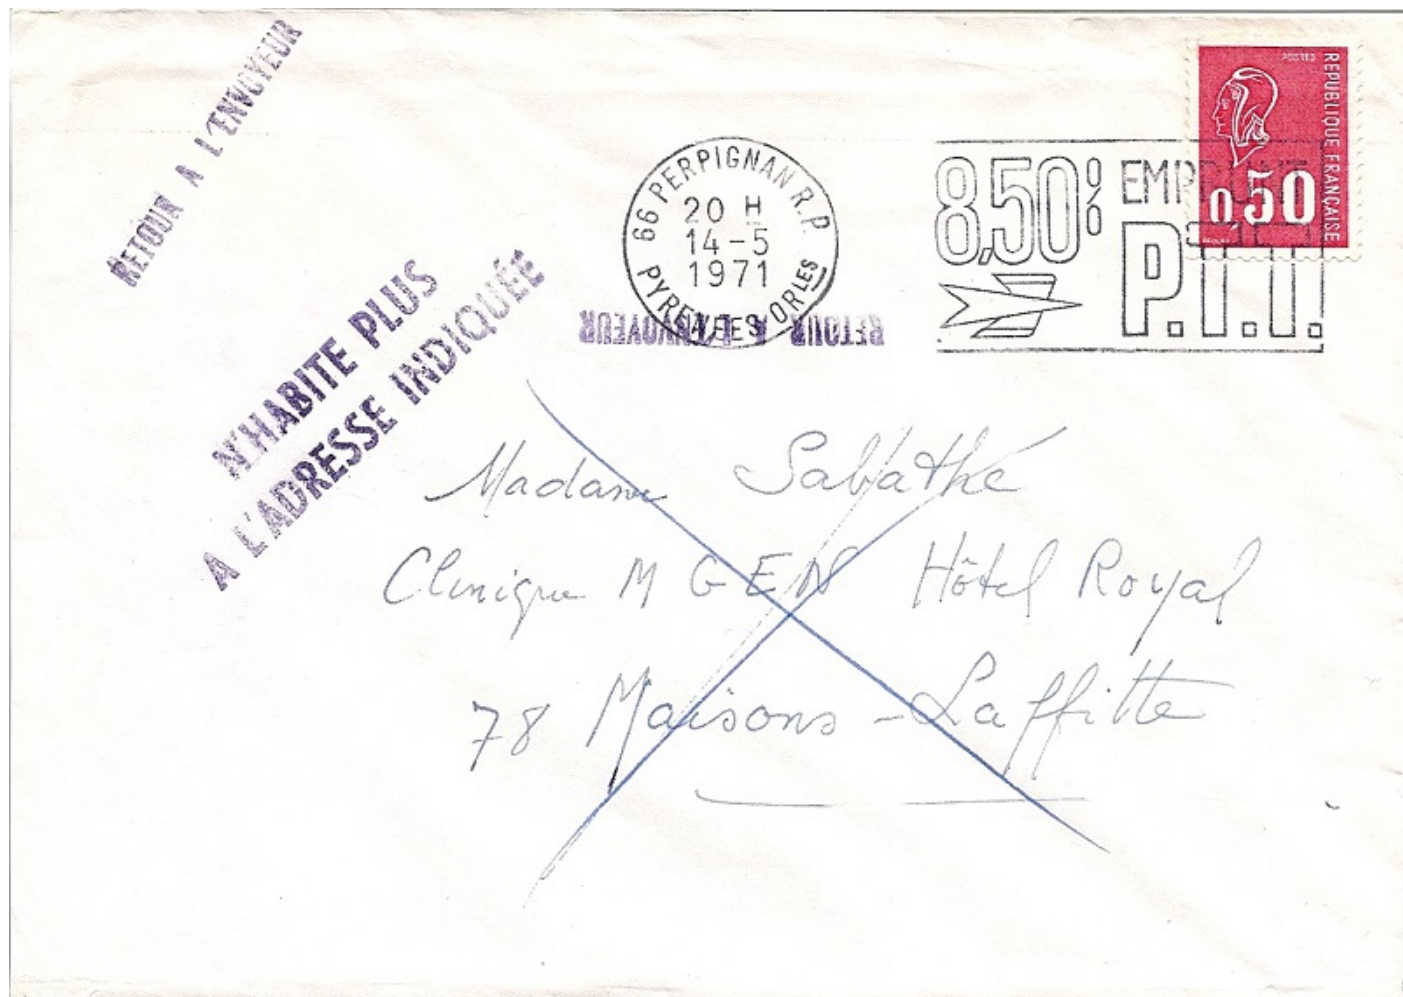 RETOUR A L'ENVOYEUR
N'HABITE PLUS
A L'ADRESSE INDIQUÉE
66 PERPIGNAN R.P.
20 H
14-5
1971
PYRENEES ORLES
RETOUR A L'ENVOYEUR
8,50% EMPRUNT
P.T.T.
POSTES
REPUBLIQUE FRANÇAISE
0,50
Madame Sabathé
Clinique M G E N Hôtel Royal
78 Maisons-Laffitte